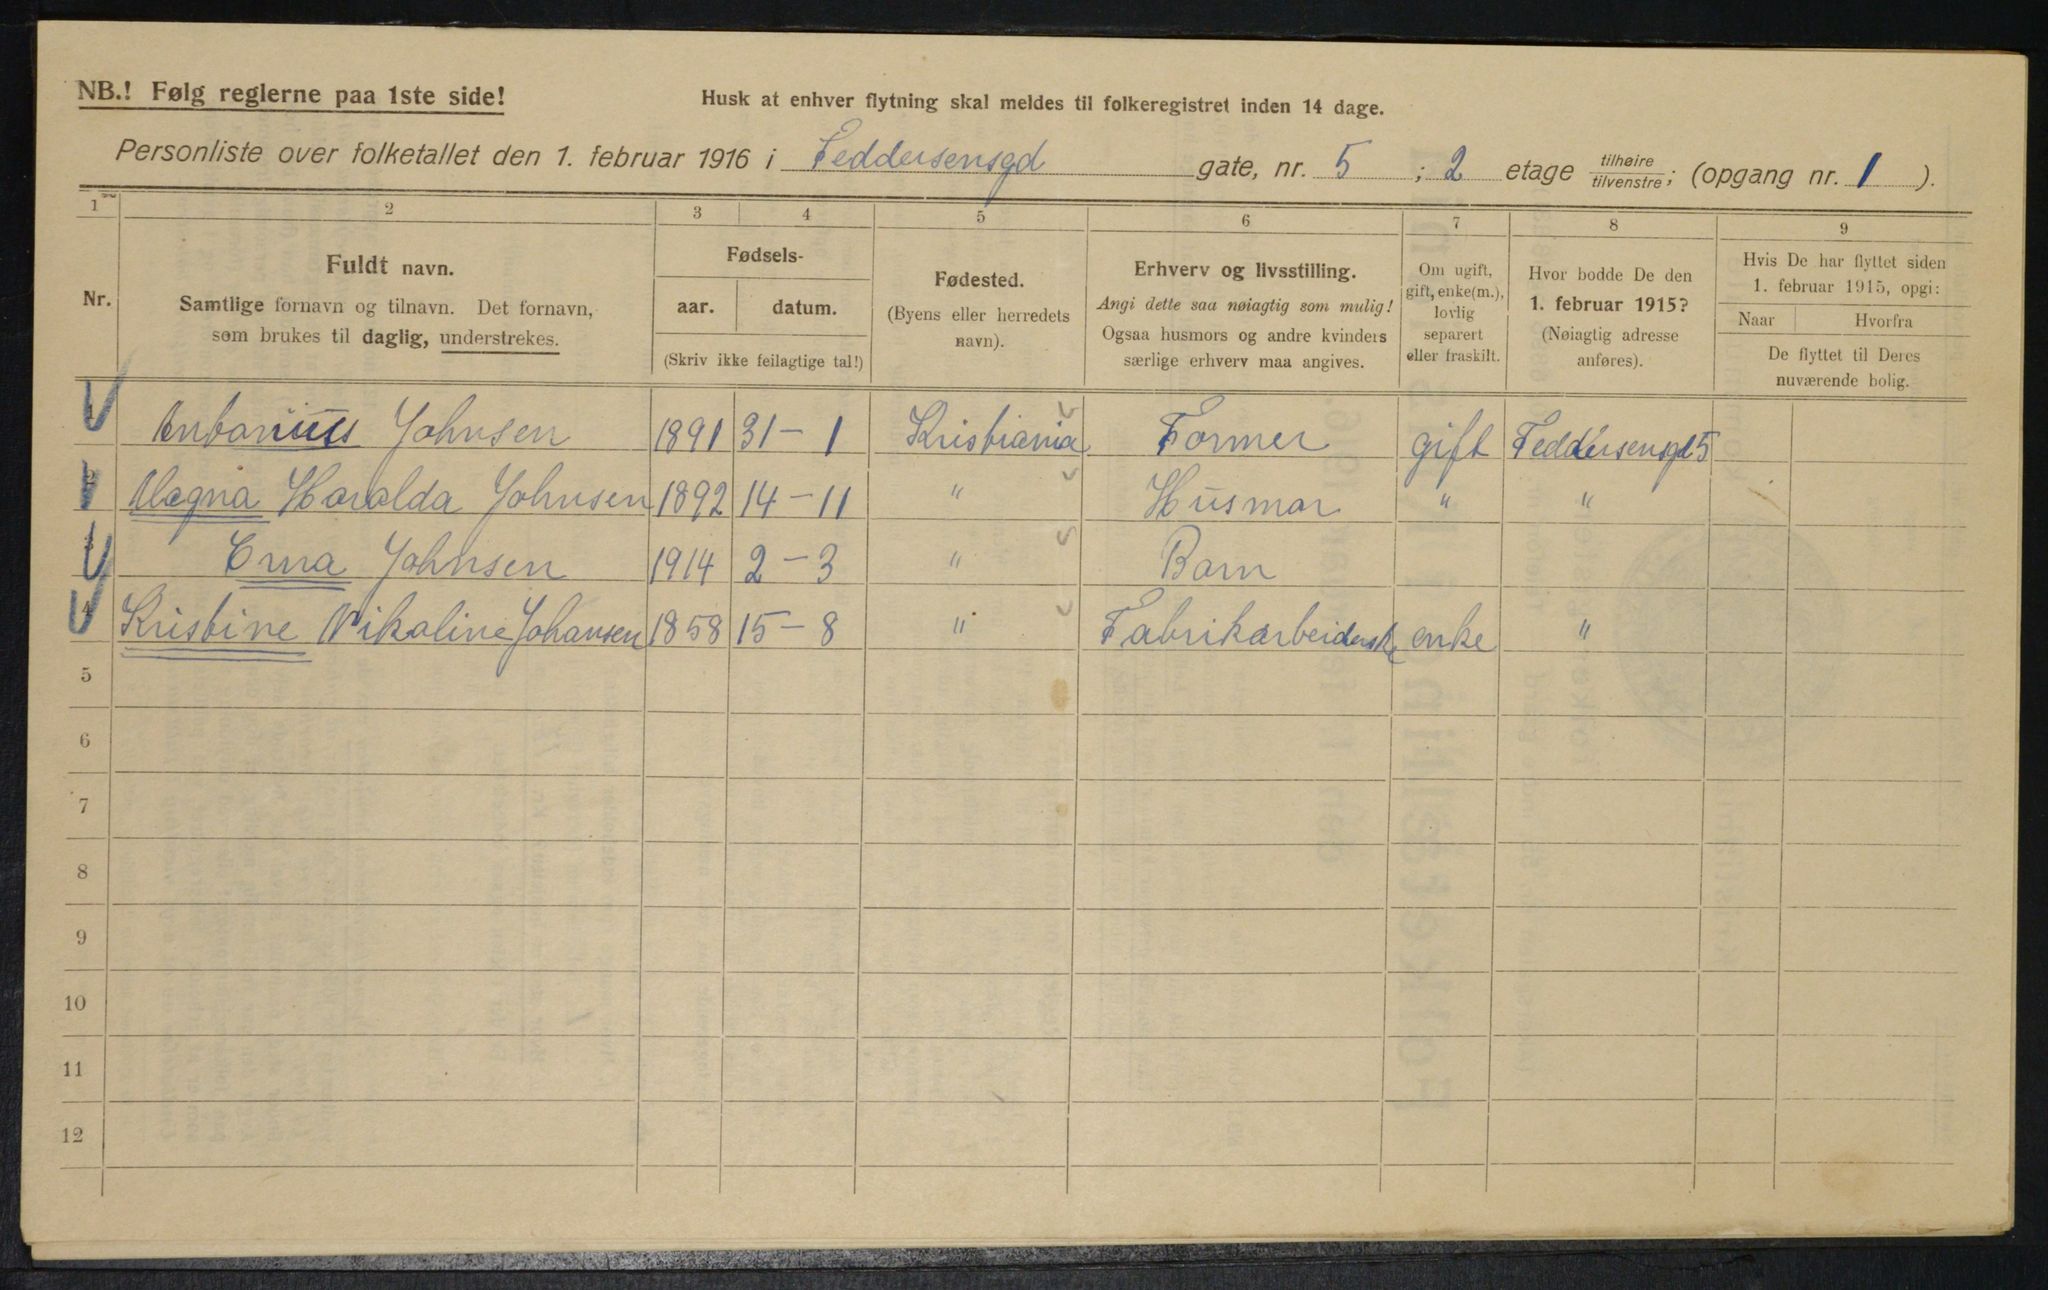 NB.! Følg reglerne paa 1ste side!
Husk at enhver flytning skal meldes til folkeregistret inden 14 dage.
Personliste over folketallet den 1. februar 1916 i Feddersensgd gate, nr. 5 ; 2 etage tilhøire/tilvenstre; (opgang nr. 1 ).
1 2 3 4 5 6 7 8 9
Nr.
Fuldt navn.
Samtlige fornavn og tilnavn. Det fornavn,
som brukes til daglig, understrekes.
Fødsels-
aar. datum.
(Skriv ikke feilagtige tal!)
Fødested.
(Byens eller herredets
navn).
Erhverv og livsstilling.
Angi dette saa nøiagtig som mulig!
Ogsaa husmors og andre kvinders
særlige erhverv maa angives.
Om ugift,
gift, enke(m.),
lovlig
separert
eller fraskilt.
Hvor bodde De den
1. februar 1915?
(Nøiagtig adresse
anføres).
Hvis De har flyttet siden
1. februar 1915, opgi:
Naar Hvorfra
De flyttet til Deres
nuværende bolig.
Antonius Johnsen 1891 31-1 Kristiania Former gift Feddersensgd 5
2 Magna Haralda Johnsen 1892 14-11 " Husmor " "
3 Erna Johnsen 1914 2-3 " Barn
4 Kristine Nikoline Johansen 1858 15-8 " Fabrikarbeiderske enke "
5
6
7
8
9
10
11
12